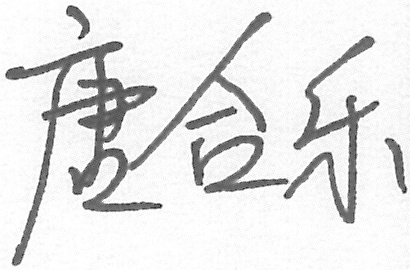 唐合乐